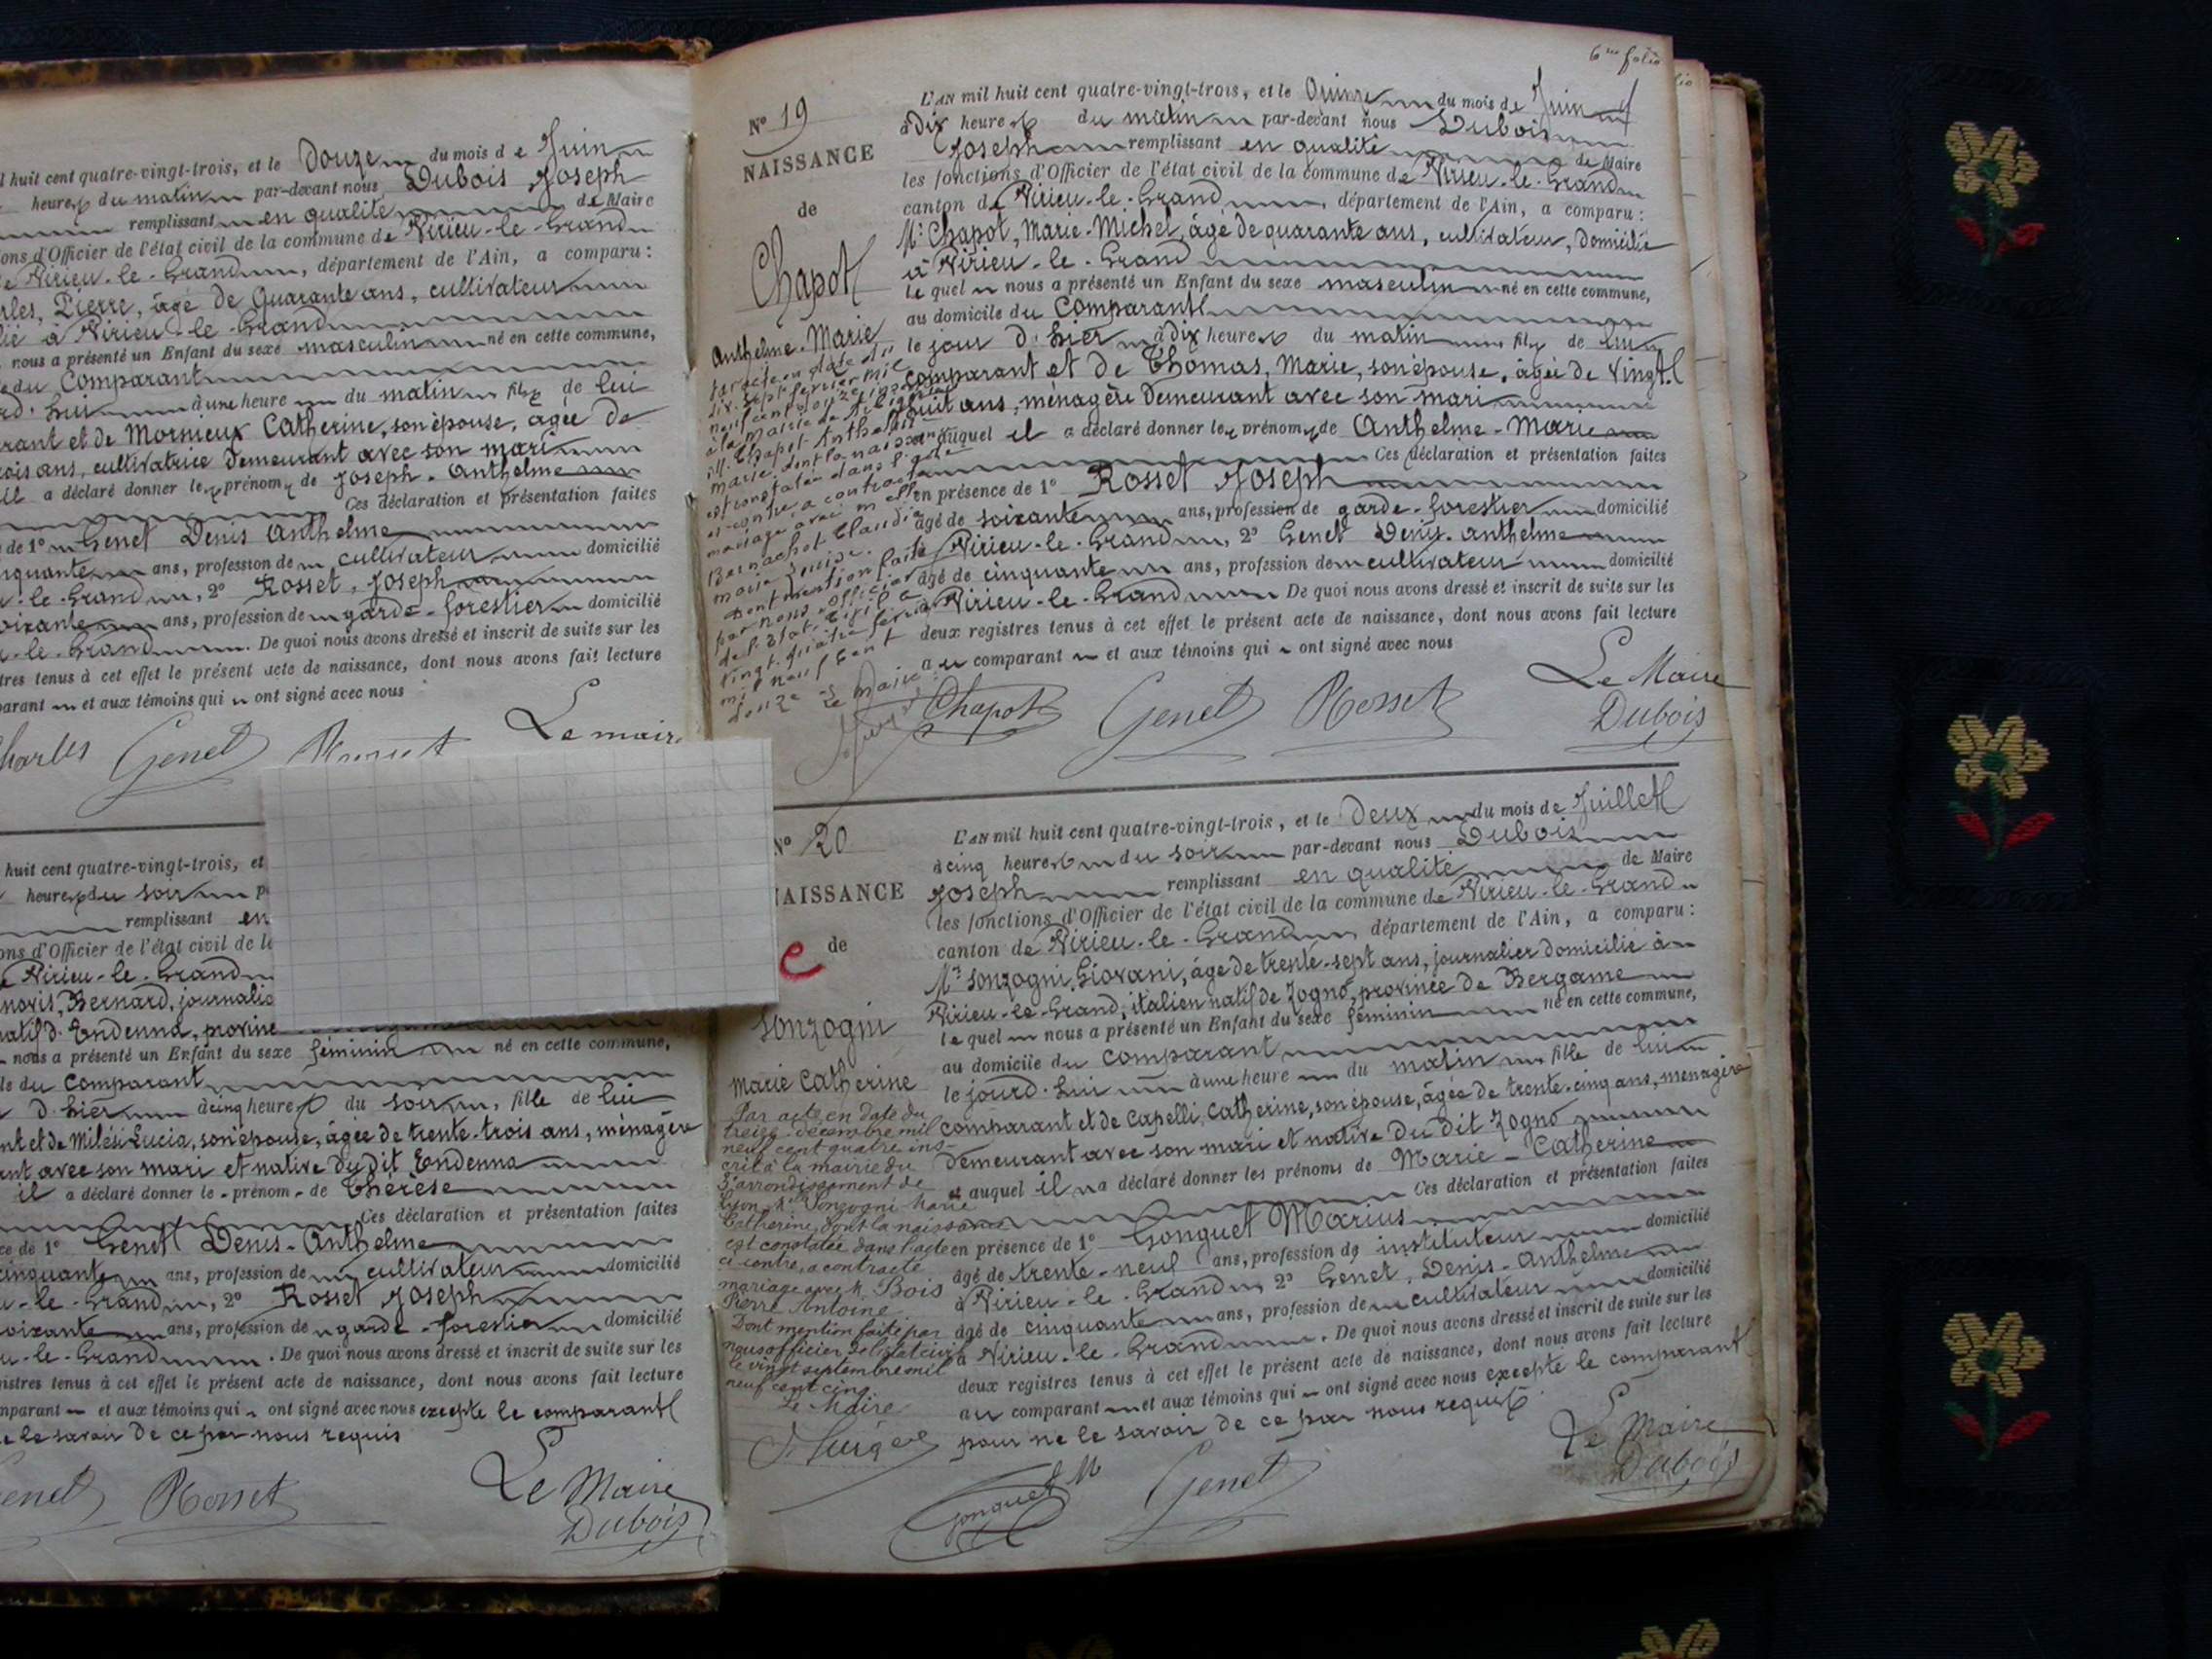 l huit cent quatre-vingt-trois, et le Douze du mois de Juin
heures du matin par-devant nous Dubois Joseph
remplissant en qualité de Maire
ons d'Officier de l'état civil de la commune de Virieu-le-Grand
e Virieu-le-Grand, département de l'Ain, a comparu :
rles, Pierre, âgé de Quarante ans, cultivateur
lié à Virieu-le-Grand
nous a présenté un Enfant du sexe masculin né en cette commune,
e du Comparant
rd'hui à une heure du matin fils de lui
arant et de Mornieux Catherine, son épouse, âgée de
rois ans, cultivatrice demeurant avec son mari
il a déclaré donner les prénoms de Joseph-Anthelme
Ces déclaration et présentation faites
de 1° Genet Denis Anthelme
nquante ans, profession de cultivateur domicilié
u-le-Grand, 2° Rosset, Joseph
oixante ans, profession de garde-forestier domicilié
u-le-Grand. De quoi nous avons dressé et inscrit de suite sur les
tres tenus à cet effet le présent acte de naissance, dont nous avons fait lecture
parant et aux témoins qui ont signé avec nous
Charles Genet Rosset Le maire
huit cent quatre-vingt-trois, et
heures du soir p
remplissant en
ons d'Officier de l'état civil de la
e Virieu-le-Grand
noris, Bernard, journalie
natif d'Endenna, provine
nous a présenté un Enfant du sexe féminin né en cette commune,
le du Comparant
d'hier à cinq heures du soir, fille de lui
nt et de Milesi Lucia, son épouse, âgée de trente-trois ans, ménagère
ant avec son mari et native du dit Endenna
il a déclaré donner le prénom de Thérèse
Ces déclaration et présentation faites
ce de 1° Genet Denis-Anthelme
cinquante ans, profession de cultivateur domicilié
u-le-Grand, 2° Rosset Joseph
oixante ans, profession de garde-forestier domicilié
u-le-Grand. De quoi nous avons dressé et inscrit de suite sur les
gistres tenus à cet effet le présent acte de naissance, dont nous avons fait lecture
mparant et aux témoins qui ont signé avec nous excepté le comparant
e le savoir de ce par nous requis
Genet Rosset Le Maire
Dubois
6me folio
N° 19
NAISSANCE
de
Chapot
Anthelme-Marie
Par acte en date du
dix-sept février mil
neuf cent douze
à la mairie de
M. Chapot Anthelme
Marie, dont la naissance
est constatée dans l'acte
ci-contre a contracté
mariage avec Melle
Bernachot Claudia
Marie Louise.
Dont mention faite
par nous officier
de l'état civil le
vingt-quatre février
mil neuf cent
douze Le Maire
L'AN mil huit cent quatre-vingt-trois, et le Quinze du mois de Juin
à Dix heures du matin par-devant nous Dubois
Joseph remplissant en qualité de Maire
les fonctions d'Officier de l'état civil de la commune de Virieu-le-Grand
canton de Virieu-le-Grand, département de l'Ain, a comparu :
Mr Chapot, Marie-Michel, âgé de quarante ans, cultivateur, domicilié
à Virieu-le-Grand
le quel nous a présenté un Enfant du sexe masculin né en cette commune,
au domicile du Comparant
le jour d'hier à dix heures du matin fils de lui
comparant et de Thomas, Marie, son épouse, âgée de vingt
huit ans, ménagère demeurant avec son mari
auquel il a déclaré donner les prénoms de Anthelme-Marie
Ces déclaration et présentation faites
en présence de 1° Rosset Joseph
âgé de soixante ans, profession de garde-forestier domicilié
à Virieu-le-Grand, 2° Genet Denis-Anthelme
âgé de cinquante ans, profession de cultivateur domicilié
à Virieu-le-Grand De quoi nous avons dressé et inscrit de suite sur les
deux registres tenus à cet effet le présent acte de naissance, dont nous avons fait lecture
au comparant et aux témoins qui ont signé avec nous
Chapot Genet Rosset Le Maire
Dubois
N° 20
NAISSANCE
e de
Sonzogni
Marie Catherine
Par acte en date du
treize décembre mil
neuf cent quatre ins-
crit à la mairie du
3e arrondissement de
Lyon Mlle Sonzogni Marie
Catherine, dont la naissance
est constatée dans l'acte
ci-contre, a contracté
mariage avec M. Bois
Pierre Antoine
Dont mention faite par
nous officier de l'état civil
le vingt septembre mil
neuf cent cinq.
Le Maire
L'AN mil huit cent quatre-vingt-trois, et le Deux du mois de Juillet
à cinq heures du soir par-devant nous Dubois
Joseph remplissant en qualité de Maire
les fonctions d'Officier de l'état civil de la commune de Virieu-le-Grand
canton de Virieu-le-Grand département de l'Ain, a comparu :
Mr Sonzogni, Giovani, âgé de trente-sept ans, journalier domicilié à
Virieu-le-Grand, italien natif de Zogno, province de Bergame
le quel nous a présenté un Enfant du sexe féminin né en cette commune,
au domicile du comparant
le jourd'hui à une heure du matin fille de lui
comparant et de Capelli, Catherine, son épouse, âgée de trente-cinq ans, ménagère
demeurant avec son mari et native du dit Zogno
auquel il a déclaré donner les prénoms de Marie-Catherine
Ces déclaration et présentation faites
en présence de 1° Gonguet Marius
âgé de trente-neuf ans, profession de instituteur domicilié
à Virieu-le-Grand, 2° Genet, Denis-Anthelme
âgé de cinquante ans, profession de cultivateur domicilié
à Virieu-le-Grand. De quoi nous avons dressé et inscrit de suite sur les
deux registres tenus à cet effet le présent acte de naissance, dont nous avons fait lecture
au comparant et aux témoins qui ont signé avec nous excepté le comparant
pour ne le savoir de ce par nous requis
Gonguet M Genet Le Maire
Dubois